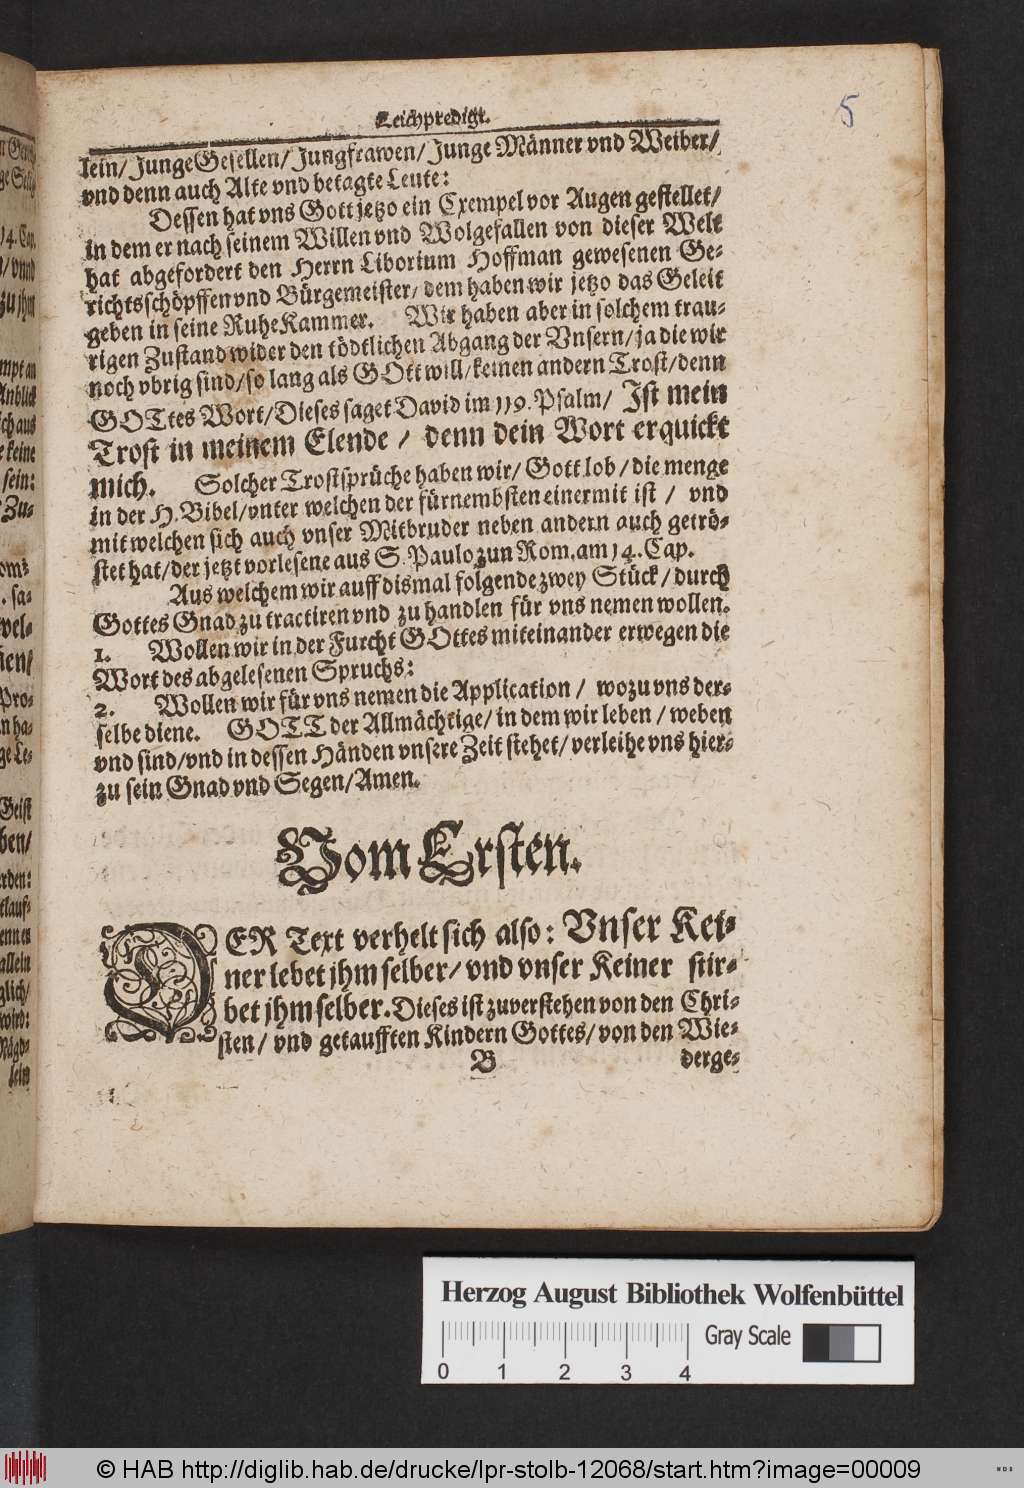 Leichpredigt.
5
lein/ Junge Gesellen/ Jungfrawen/ Junge Männer vnd Weiber/
vnd denn auch Alte vnd betagte Leute:
Dessen hat vns Gott jetzo ein Exempel vor Augen gestellet/
in dem er nach seinem Willen vnd Wolgefallen von dieser Welt
hat abgefordert den Herrn Liborium Hoffman gewesenen Ge-
richtsschöpffen vnd Bürgemeister/ dem haben wir jetzo das Geleit
geben in seine RuheKammer. Wir haben aber in solchem trau-
rigen Zustand wider den tödtlichen Abgang der Vnsern/ ja die wir
noch vbrig sind/ so lang als GOtt will/ keinen andern Trost/ denn
GOTtes Wort/ Dieses saget David im 119. Psalm/ Ist mein
Trost in meinem Elende / denn dein Wort erquickt
mich. Solcher Trostsprüche haben wir/ Gott lob / die menge
in der H. Bibel/ vnter welchen der fürnembsten einer mit ist / vnd
mit welchen sich auch vnser Mitbruder neben andern auch getrö-
stet hat/ der jetzt vorlesene aus S. Paulo zun Rom. am 14. Cap.
Aus welchem wir auff dismal folgende zwey Stück / durch
Gottes Gnad zu tractiren vnd zu handlen für vns nemen wollen.
1. Wollen wir in der Furcht GOttes miteinander erwegen die
Wort des abgelesenen Spruchs:
2. Wollen wir für vns nemen die Application / wozu vns der-
selbe diene. GOTT der Allmächtige/ in dem wir leben / weben
vnd sind/ vnd in dessen Händen vnsere Zeit stehet/ verleihe vns hier-
zu sein Gnad vnd Segen/ Amen.
Vom Ersten.
DER Text verhelt sich also: Vnser Kei-
ner lebet jhm selber/ vnd vnser Keiner stir-
bet jhm selber. Dieses ist zuverstehen von den Chri-
sten / vnd getaufften Kindern Gottes/ von den Wie-
B derge-
Herzog August Bibliothek Wolfenbüttel
Gray Scale
0 1 2 3 4
© HAB http://diglib.hab.de/drucke/lpr-stolb-12068/start.htm?image=00009